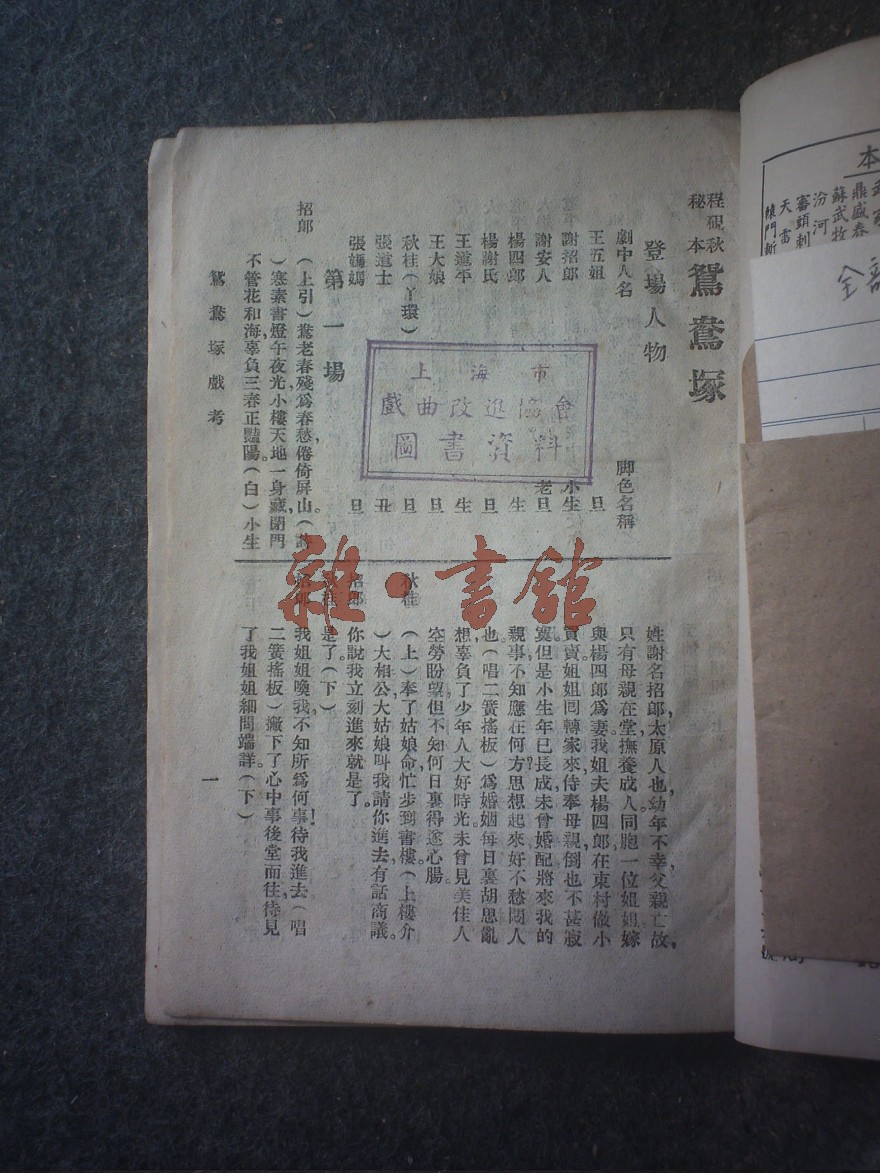 程硯秋
秘本
鴛鴦塚
登場人物
劇中人名 脚色名稱
王五姐 旦
謝招郎 小生
謝安人 老旦
楊四郎 生
楊謝氏 旦
王道平 生
王大娘 旦
秋桂（丫環） 旦
張道士 丑
張媽媽 旦
第一場
招郎 （上引）鴦老春殘，爲春愁，倦倚屏山。（詩
）寒素書燈午夜光，小樓天地一身藏，閉門
不管花和海，辜負三春正豔陽。（白）小生
鴛鴦塚戲考
姓謝名招郎，太原人也，幼年不幸父親亡故，
只有母親在堂，撫養成人，同胞一位姐姐，嫁
與楊四郎爲妻，我姐夫楊四郎，在東村做小
買賣，姐姐囘轉家來，侍奉母親，倒也不甚寂
寞，但是小生年已長成，未曾婚配，將來我的
親事，不知應在何方，思想起來，好不愁悶人
也。（唱二簧搖板）爲婚姻每日裏胡思亂
想，辜負了少年人大好時光，未曾見美佳人
空勞盼望，但不知何日裏得遂心腸。
秋桂 （上）奉了姑娘命，忙步到書樓。（上樓介
）大相公，大姑娘叫我請你進去，有話商議。
招郎 你說我立刻進來就是了。
秋桂 是了。（下）
招郎 我姐姐喚我，不知所爲何事，待我進去！（唱
二簧搖板）撇下了心中事後堂而往，待見
了我姐姐細問端詳。（下）
一
上海市
戲曲改進協會
圖書資料
雜·書館
本
鼎盛春
蘇武牧
汾河
審頭刺
天雷
轅門斬
全部